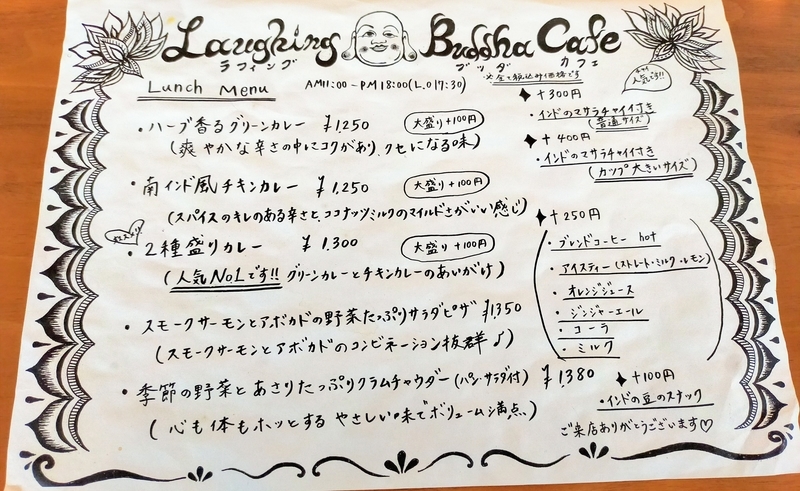 Laughing Buddha Cafe
ラフィング ブッダ カフェ
※全て税込み価格です
Lunch Menu AM11:00-PM18:00(L.O17:30)
・ハーブ香るグリーンカレー ¥1,250 大盛り+100円
(爽やかな辛さの中にコクがあり、クセになる味)
・南インド風チキンカレー ¥1,250 大盛り+100円
(スパイスのキレのある辛さと、ココナッツミルクのマイルドさがいい感じ)
オススメ!
・2種盛りカレー ¥1,300 大盛り+100円
(人気No1です!! グリーンカレーとチキンカレーのあいがけ)
・スモークサーモンとアボカドの野菜たっぷりサラダピザ ¥1350
(スモークサーモンとアボカドのコンビネーション抜群♪)
・季節の野菜とあさりたっぷりクラムチャウダー(パン・サラダ付) ¥1,380
(心も体もホッとする やさしい味でボリューム満点、)
人気です!!
+300円
・インドのマサラチャイ付き
(普通サイズ)
+400円
・インドのマサラチャイ付き
(カップ大きいサイズ)
+250円
・ブレンドコーヒー hot
・アイスティー(ストレート・ミルク・レモン)
・オレンジジュース
・ジンジャーエール
・コーラ
・ミルク
+100円
・インドの豆のスナック
ご来店ありがとうございます♡